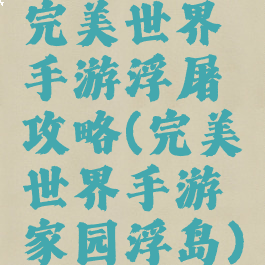 完美世界
手游浮屠
攻略(完美
世界手游
家园浮岛)